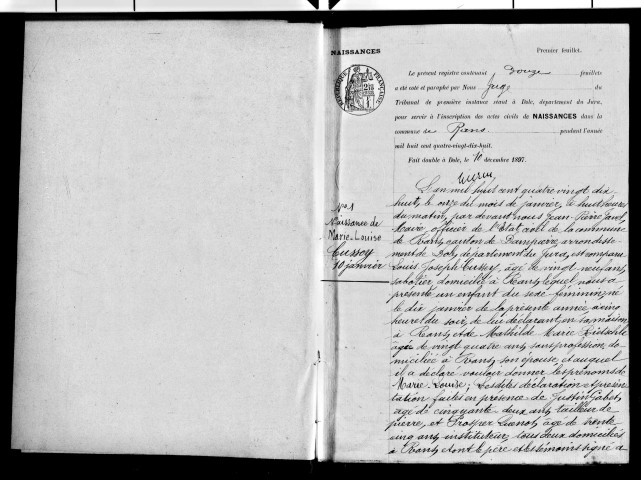 NAISSANCES
Premier feuillet.
Le présent registre contenant Douze feuillets
a été coté et paraphé par Nous Juge du
Tribunal de première instance séant à Dole, département du Jura,
pour servir à l'inscription des actes civils de NAISSANCES dans la
commune de Rans pendant l'année
mil huit cent quatre-vingt-dix-huit.
Fait double à Dole, le 10 décembre 1897.
No 1
Naissance de
Marie-Louise
Cussey
10 janvier
L'an mil huit cent quatre vingt dix-
huit, le onze du mois de janvier, à huit heures
du matin, par devant nous Jean-Pierre
Maire, officier de l'Etat civil de la commune
de Rans, canton de Dampierre, arrondisse-
ment de Dole, département du Jura, est comparu
Louis Joseph Cussey, âgé de vingt neuf ans,
sabotier, domicilié à Rans, lequel nous a
présenté un enfant du sexe féminin, né
le dix janvier de la présente année, à cinq
heures du soir, de lui déclarant, en sa maison
à Rans, et de Mathilde Marie
âgée de vingt quatre ans, sans profession, do-
miciliée à Rans, son épouse, et auquel
il a déclaré vouloir donner les prénoms de
Marie-Louise; Lesdites déclaration et présen-
tation faites en présence de Justin Gabet,
âgé de cinquante deux ans, tailleur de
pierre, et Prosper âgé de trente
cinq ans, instituteur, tous deux domiciliés
à Rans, et ont le père et les témoins signé a